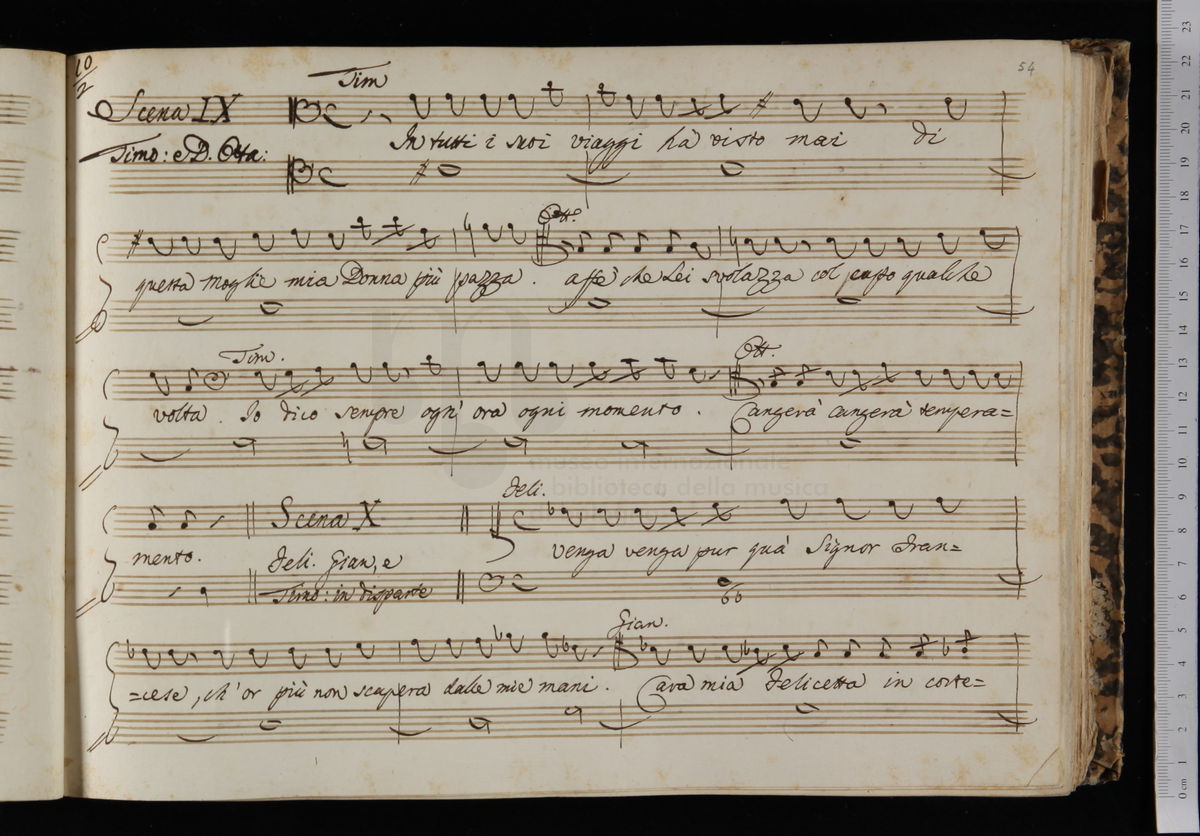 10/2
54
Tim
Scena IX
In tutti i suoi viaggi hà visto mai di
Timo: e D. Otta:
Ott.
questa moglie mia Donna più pazza. affè che Lei svolazza col capo qualche
Tim. Ott.
volta. Io dico sempre ogn' ora ogni momento. Cangerà cangerà tempera=
Feli.
Scena X
mento. Feli. Gian, e venga venga pur quà Signor Fran=
Timo: in disparte
66
Gian.
=cese, ch' or più non scapera dalle mie mani. Cara mia Felicetta in corte=
museo internazionale
biblioteca della musica
0 cm 1 2 3 4 5 6 7 8 9 10 11 12 13 14 15 16 17 18 19 20 21 22 23